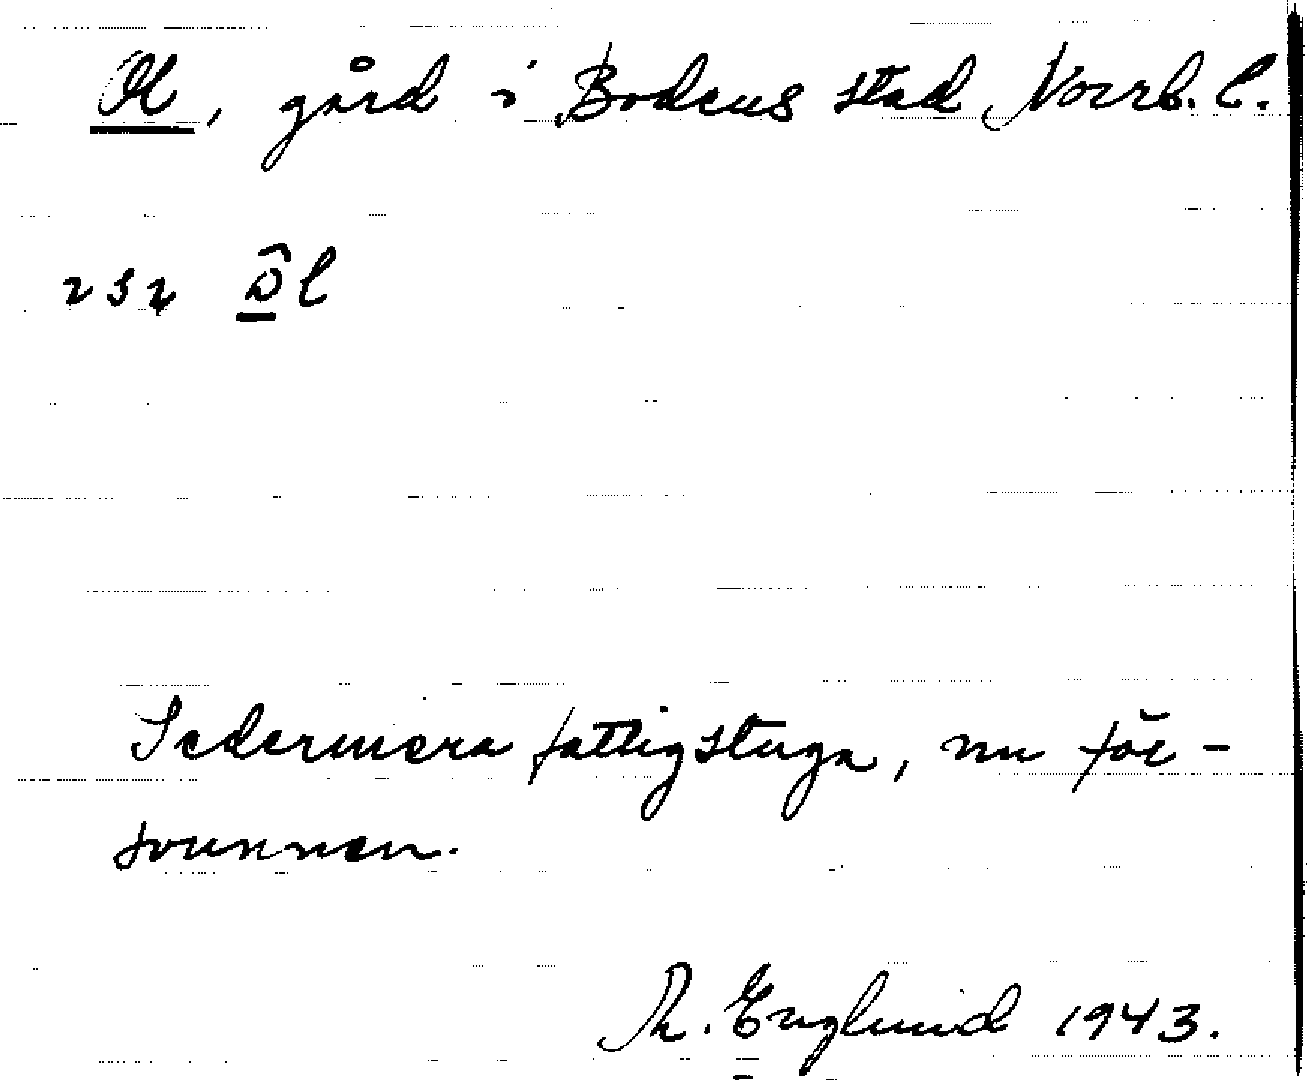 Ol, gård i Bodens stad Norrb. l.
Sedermera fattigstuga, nu för-
svunnen.
Th. Englund 1943.